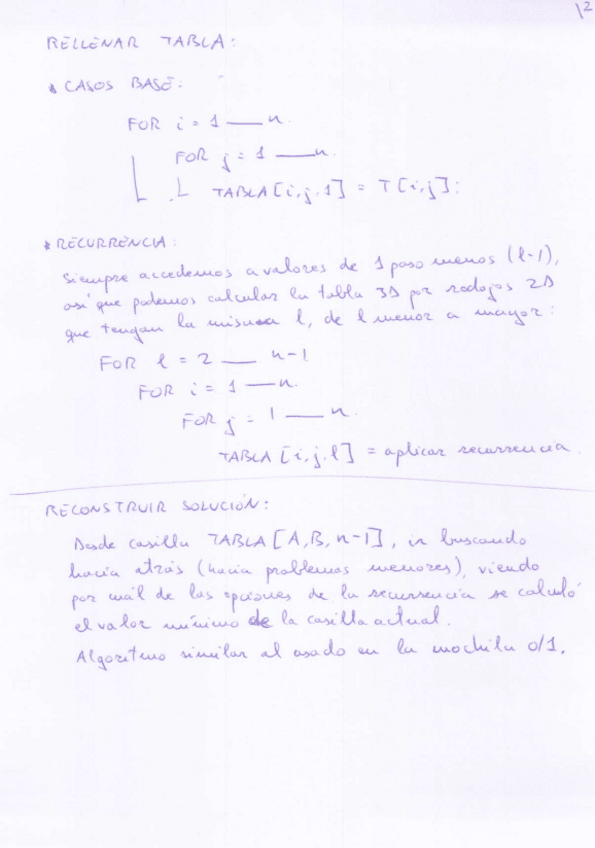 12
RELLENAR TABLA:
* CASOS BASE:
FOR i = 1 — n.
FOR j = 1 — n.
TABLA[i,j,1] = T[i,j];
* RECURRENCIA:
Siempre accedemos a valores de 1 paso menos (l-1),
así que podemos calcular la tabla 3D por rodajas 2D
que tengan la misma l, de l menor a mayor:
FOR l = 2 — n-1
FOR i = 1 — n.
FOR j = 1 — n.
TABLA [i,j,l] = aplicar recurrencia.
RECONSTRUIR SOLUCIÓN:
Desde casilla TABLA[A,B,n-1], ir buscando
hacia atrás (hacia problemas menores), viendo
por cuál de las opciones de la recurrencia se calculó
el valor mínimo de la casilla actual.
Algoritmo similar al usado en la mochila 0/1.